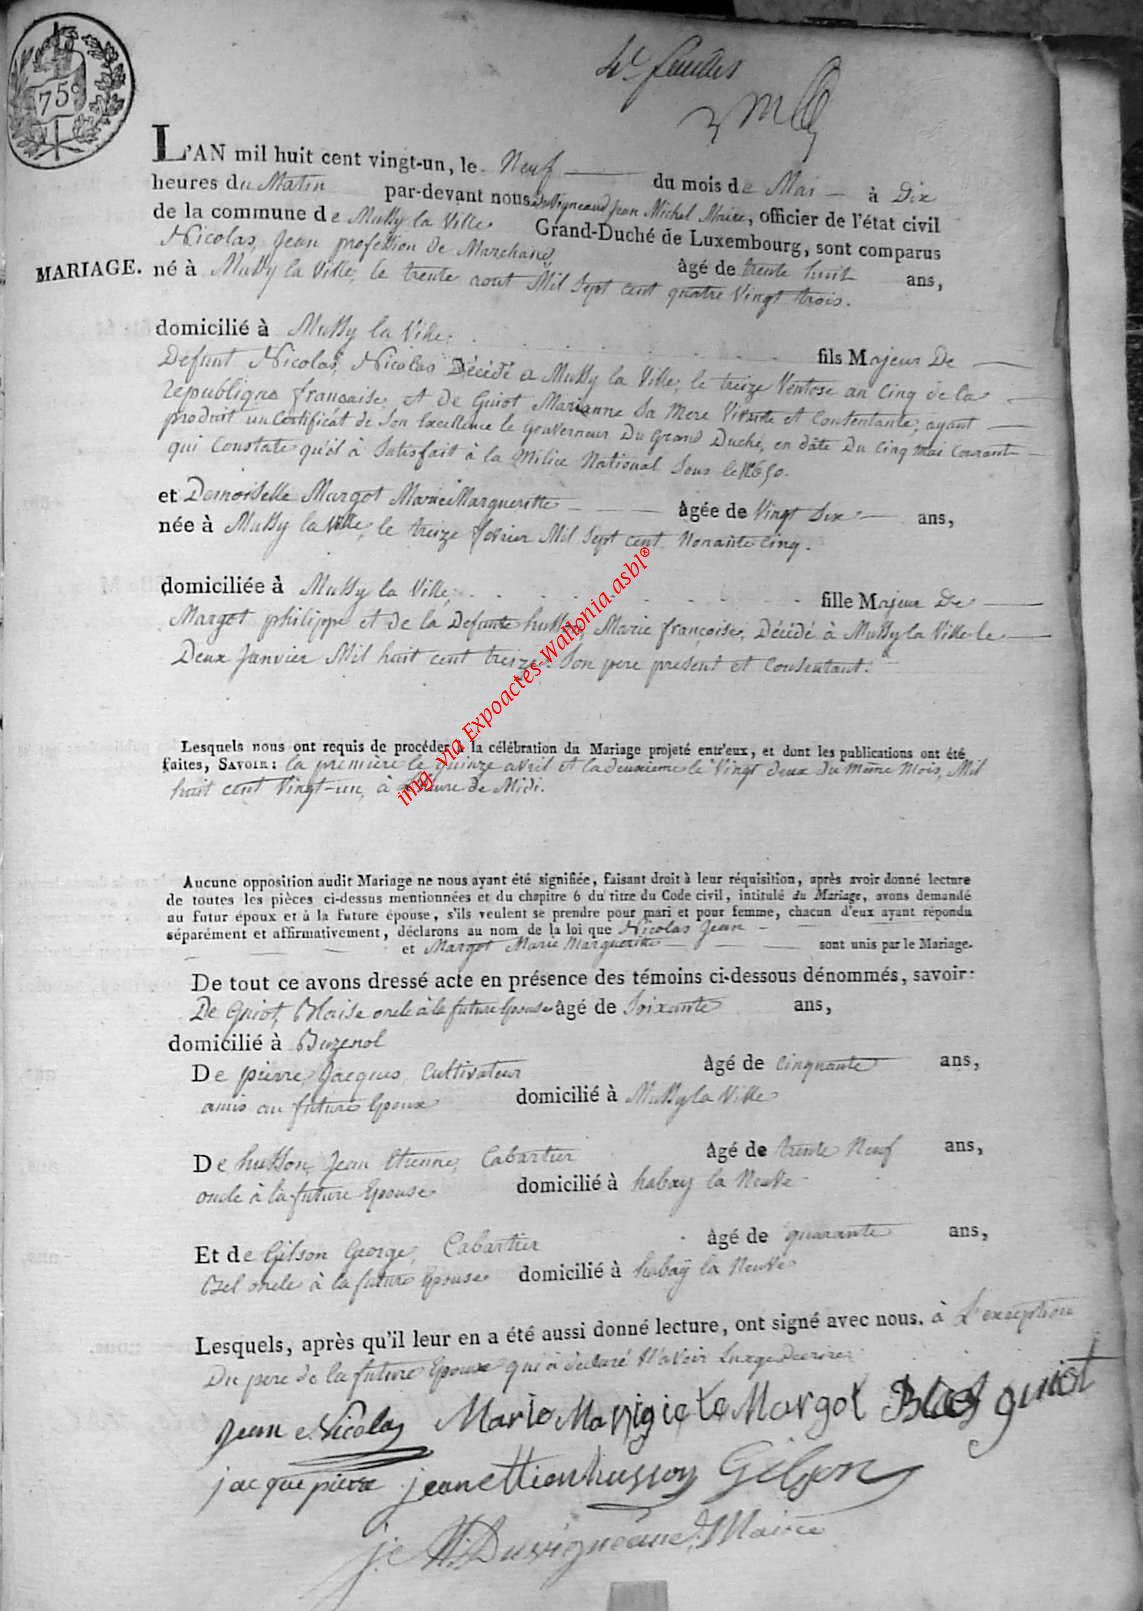 75c
4e feuilles
L'AN mil huit cent vingt-un, le Neuf du mois de Mai à Dix
heures du Matin par-devant nous duvigneaud Jean Michel Maire, officier de l'état civil
de la commune de Mussy la Ville Grand-Duché de Luxembourg, sont comparus
Nicolas, Jean profession de Marchand, âgé de trente huit ans,
MARIAGE. né à Mussy la Ville, le trente aout Mil Sept cent quatre Vingt trois.
domicilié à Mussy la Ville, fils Majeur De
Defunt Nicolas, Nicolas Décédé a Mussy la Ville, le treize Ventose an Cinq de la
republique francaise, et de Guiot Marianne Sa Mere Vivante et Contentante, ayant
produit un Certificat de Son Excellence le Gouverneur Du Grand Duché, en date Du Cinq mai Courant
qui Constate qu'il à Satisfait à la Milice National Sous le N°
et Demoiselle Margot Marie Margueritte âgée de Vingt Six ans,
née à Mussy la Ville, le treize fevrier Mil Sept cent Nonante Cinq.
domiciliée à Mussy la Ville, fille Majeur De
Margot philippe et de la Defunte husson, Marie françoise, Décédé à Mussy la Ville le
Deux Janvier Mil huit cent treize. Son pere present et Consentant.
Lesquels nous ont requis de procéder à la célébration du Mariage projeté entr'eux, et dont les publications ont été
faites, SAVOIR: la premiere le quinze avril et la deuxieme le Vingt deux du meme Mois, Mil
huit cent Vingt-un, à l'heure de Midi.
Aucune opposition audit Mariage ne nous ayant été signifiée, faisant droit à leur réquisition, après avoir donné lecture
de toutes les pièces ci-dessus mentionnées et du chapitre 6 du titre du Code civil, intitulé du Mariage, avons demandé
au futur époux et à la future épouse, s'ils veulent se prendre pour mari et pour femme, chacun d'eux ayant répondu
séparément et affirmativement, déclarons au nom de la loi que Nicolas Jean
et Margot Marie Marguerite sont unis par le Mariage.
De tout ce avons dressé acte en présence des témoins ci-dessous dénommés, savoir:
De Guiot, Blaise oncle à la future Epouse âgé de Soixante ans,
domicilié à Buzenol
De pierre Jacques, Cultivateur âgé de cinquante ans,
amis au future Epoux domicilié à Mussy la Ville
De husson, Jean Etienne, Cabartier âgé de trente Neuf ans,
oncle à la future Epouse domicilié à habay la Neuve
Et de Gilson George, Cabartier âgé de quarante ans,
Bel oncle à la future Epouse domicilié à habay la Neuve
Lesquels, après qu'il leur en a été aussi donné lecture, ont signé avec nous. à L'exception
Du pere de la future Epouse qui a declaré
Jean Nicolas Marie Margot Blaes guiot
jacque pierre jean ettien husson Gilson
j. M. Duvigneaud, Maire
img. via Expoactes-Wallonia.asbl®